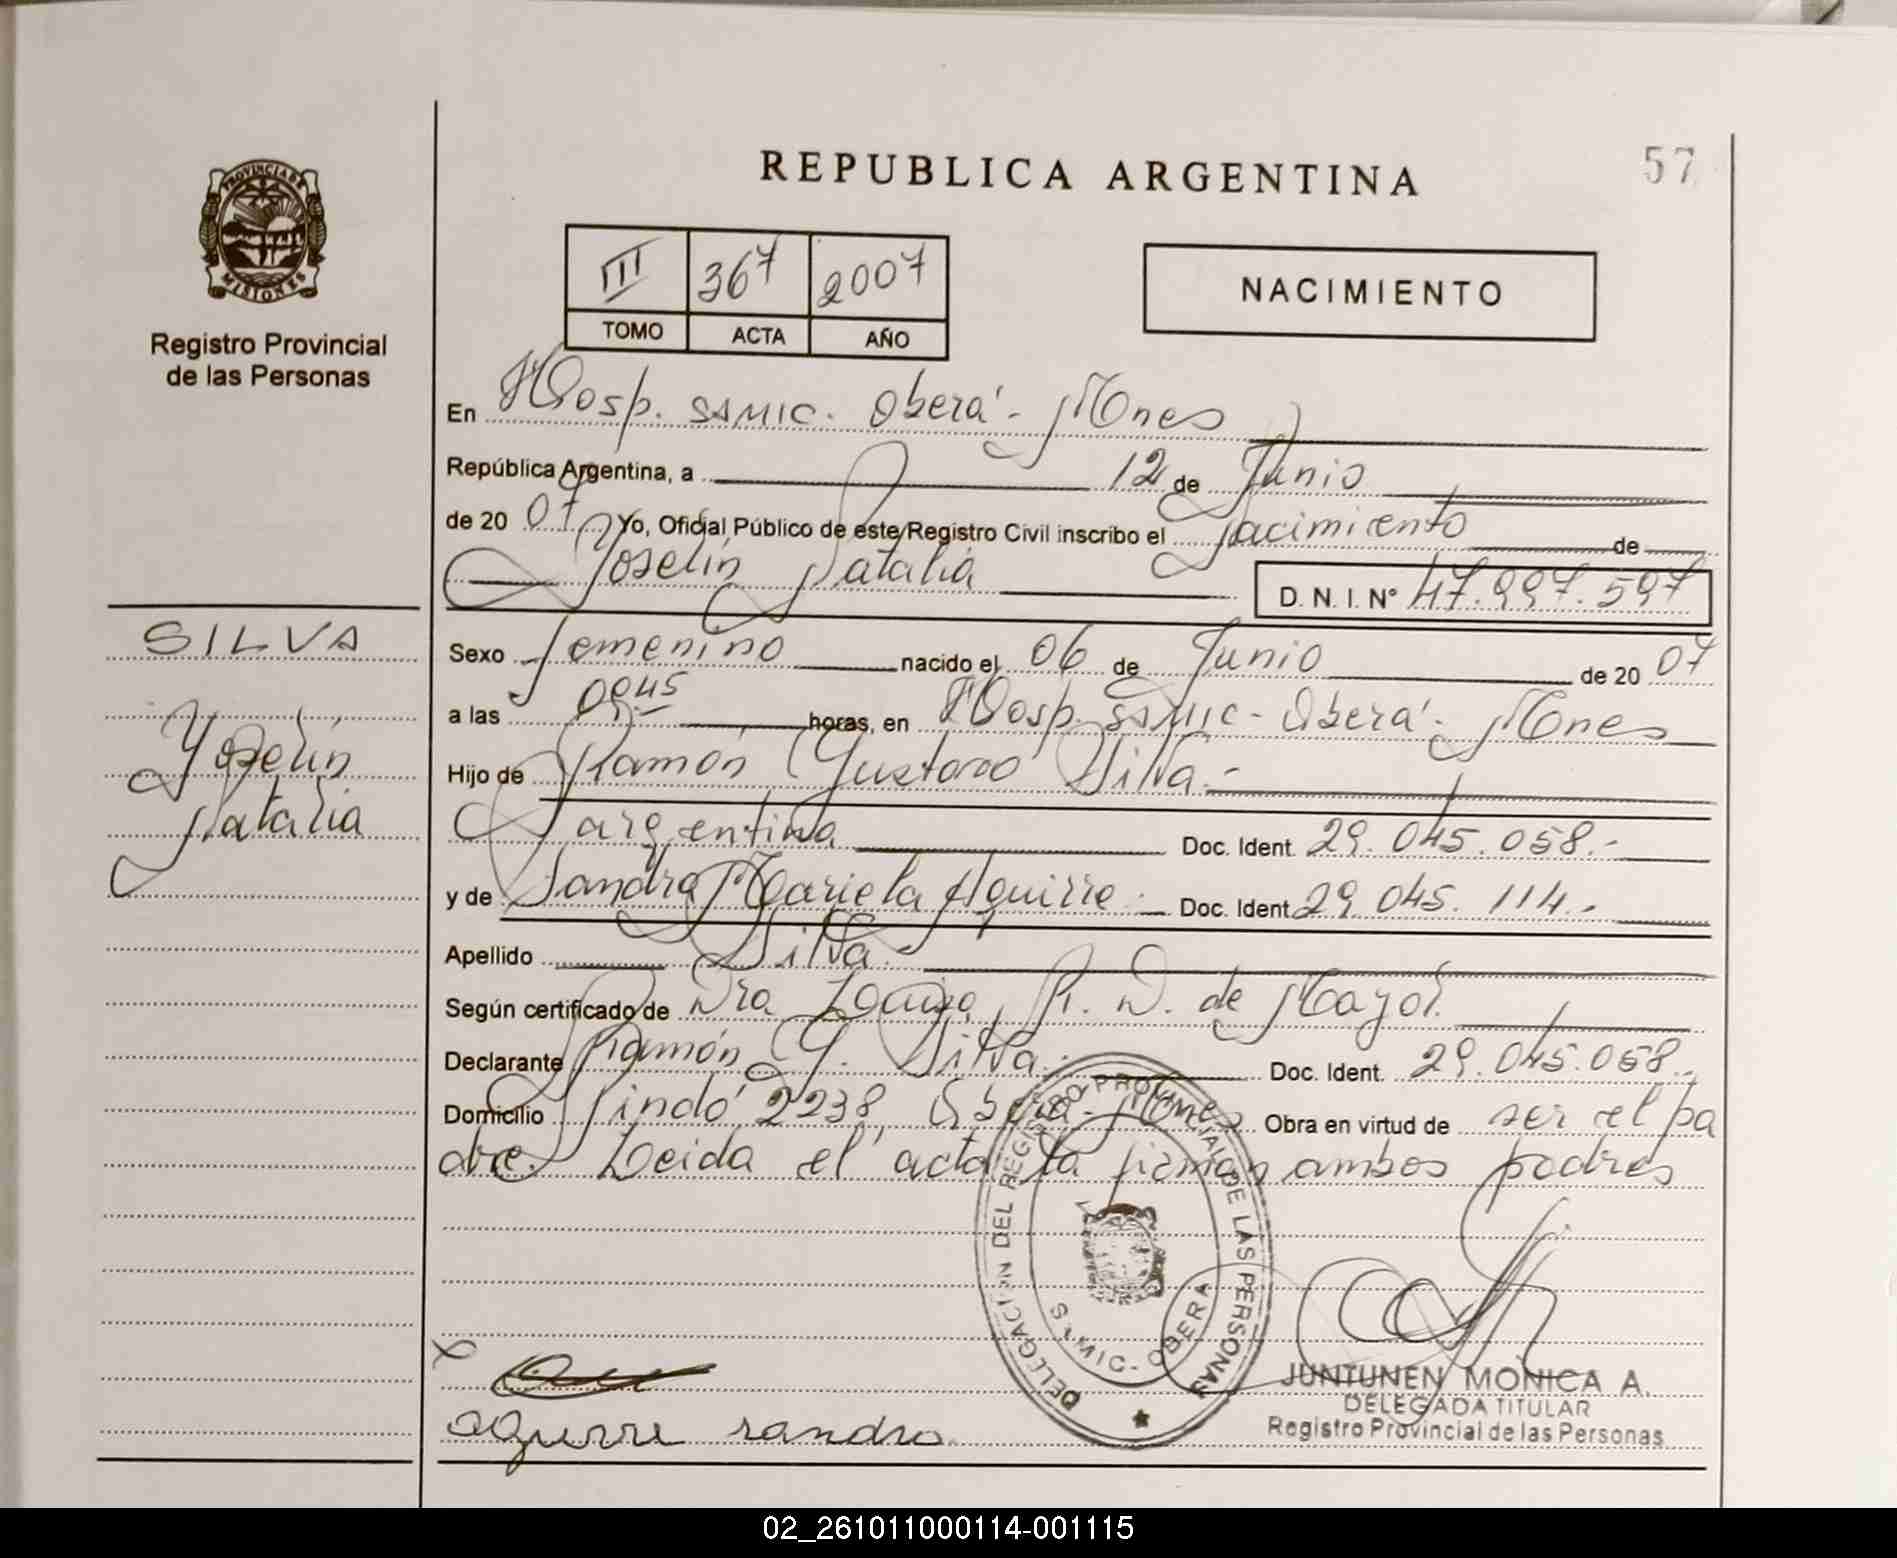 PROVINCIA DE
MISIONES
Registro Provincial
de las Personas
SILVA
Yoselín
Natalia
REPUBLICA ARGENTINA
57
III 367 2007
TOMO ACTA AÑO
NACIMIENTO
En Hosp. SAMIC. Oberá - Mnes
República Argentina, a 12 de Junio
de 20 07 Yo, Oficial Público de este Registro Civil inscribo el Nacimiento de
Yoselín Natalia
D.N.I. Nº 47.997.597
Sexo Femenino nacido el 06 de Junio de 20 07
a las 0945 horas, en Hosp. SAMIC - Oberá - Mnes
Hijo de Ramón Gustavo Silva.-
Argentina Doc. Ident. 29.045.058.-
y de Sandra Mariela Aguirre Doc. Ident. 29.045.114.-
Apellido Silva.
Según certificado de Dra R. D. de Mayol.
Declarante Ramón G. Silva. Doc. Ident. 29.045.058.-
Domicilio Pindó 2238, Oberá - Mnes Obra en virtud de ser el pa
dre. Leida el acta la firman ambos padres
DELEGACION DEL REGISTRO PROVINCIAL DE LAS PERSONAS
SAMIC - OBERA
x
aguirre sandra
JUNTUNEN MONICA A.
DELEGADA TITULAR
Registro Provincial de las Personas
02_261011000114-001115